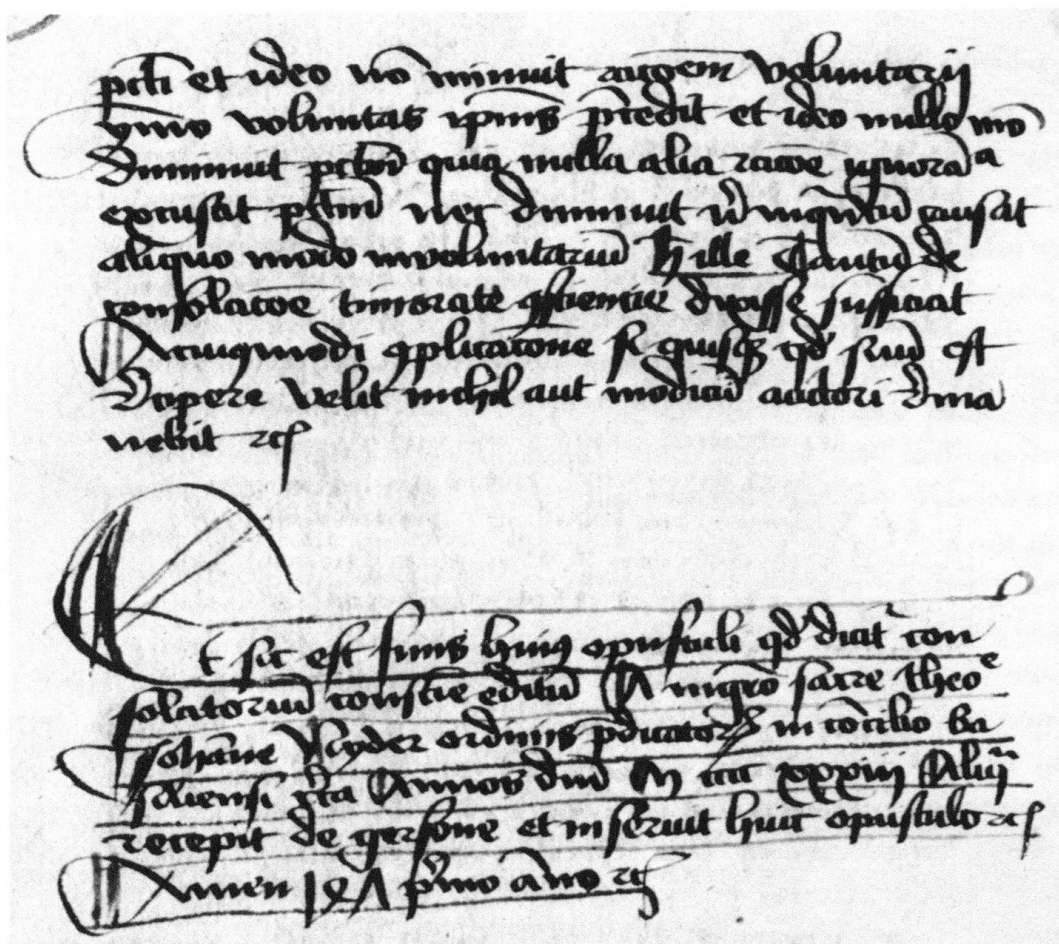 pcti et ideo no minuit racoem voluntarij
ymo voluntas ipius pcedit et ideo nullo mo
diminuit pctm quia nulla alia racoe ignora a
excusat pctm nec diminuit n inqntu causat
aliquo modo involuntariu h ille Tantu de
consolacoe timorate sciencie dixisse sufficiat
A cuiqmodi splicacone si quisq qd suu est
Decipere velit nichil aut modicu auctori dma
nebit rc
Et sic est finis huiq opusculi qd dicit con
solatoriu conscie editu A mgro sacre theo e
Johane Nyder ordinis pdicator in concilio ba
siliensi Annos dni M cccc xxxiiij
recepit de gersone et inseruit huic opusculo rc
Amen pmo ano rc